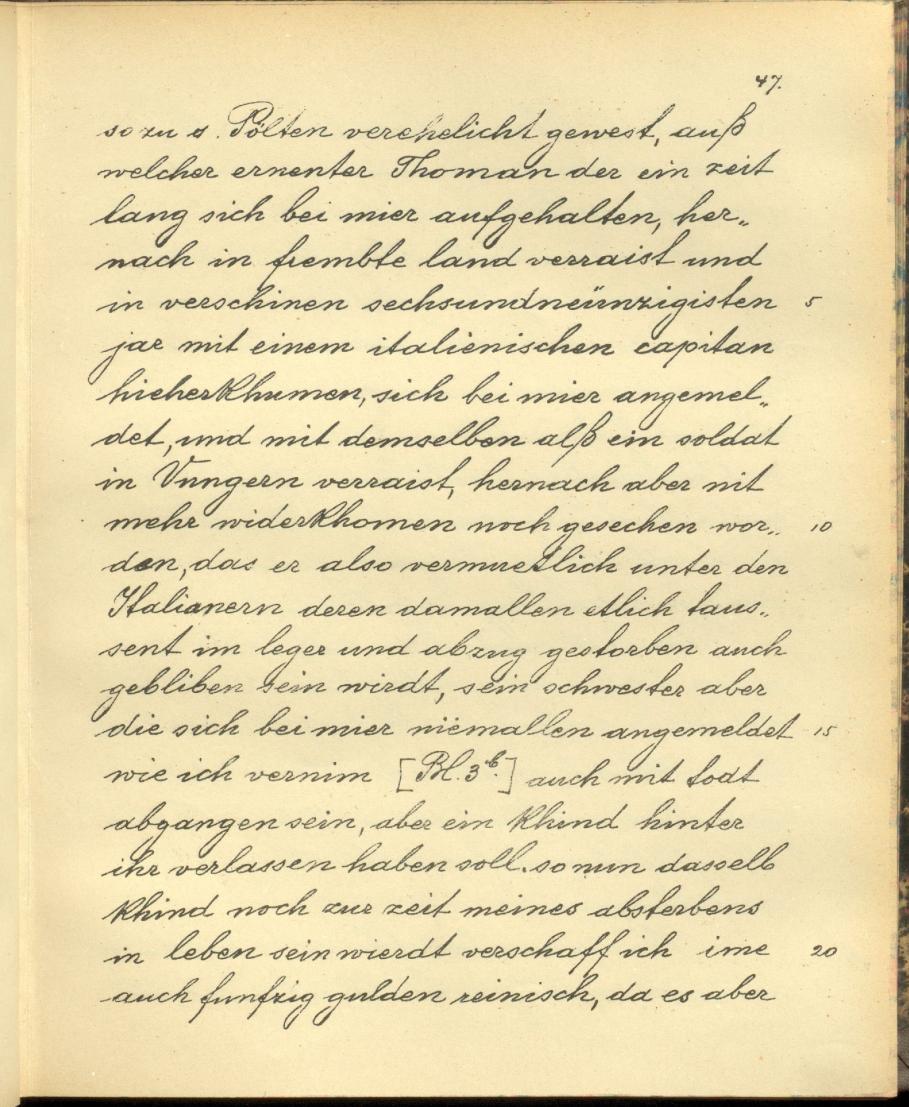 47.
so zu s. Pölten verehelicht gewest, auß
welcher ernenter Thoman der ein zeit
lang sich bei mier aufgehalten, her„
nach in frembte land verraist und
in verschinen sechsundneünzigisten 5
jar mit einem italienischen capitan
hieherkhumen, sich bei mier angemel„
det, und mit demselben alß ein soldat
in Vnngern verraist, hernach aber nit
mehr widerkhomen noch gesechen wor„ 10
den, das er also vermuetlich unter den
Italianern deren damallen etlich taus„
sent im leger und abzug gestorben auch
gebliben sein wirdt, sein schwester aber
die sich bei mier niemallen angemeldet 15
wie ich vernim [Bl. 3b.] auch mit todt
abgangen sein, aber ein khind hinter
ihr verlassen haben soll. so nun dasselb
khind noch zur zeit meines absterbens
in leben sein wierdt verschaff ich ime 20
auch funfzig gulden reinisch, da es aber